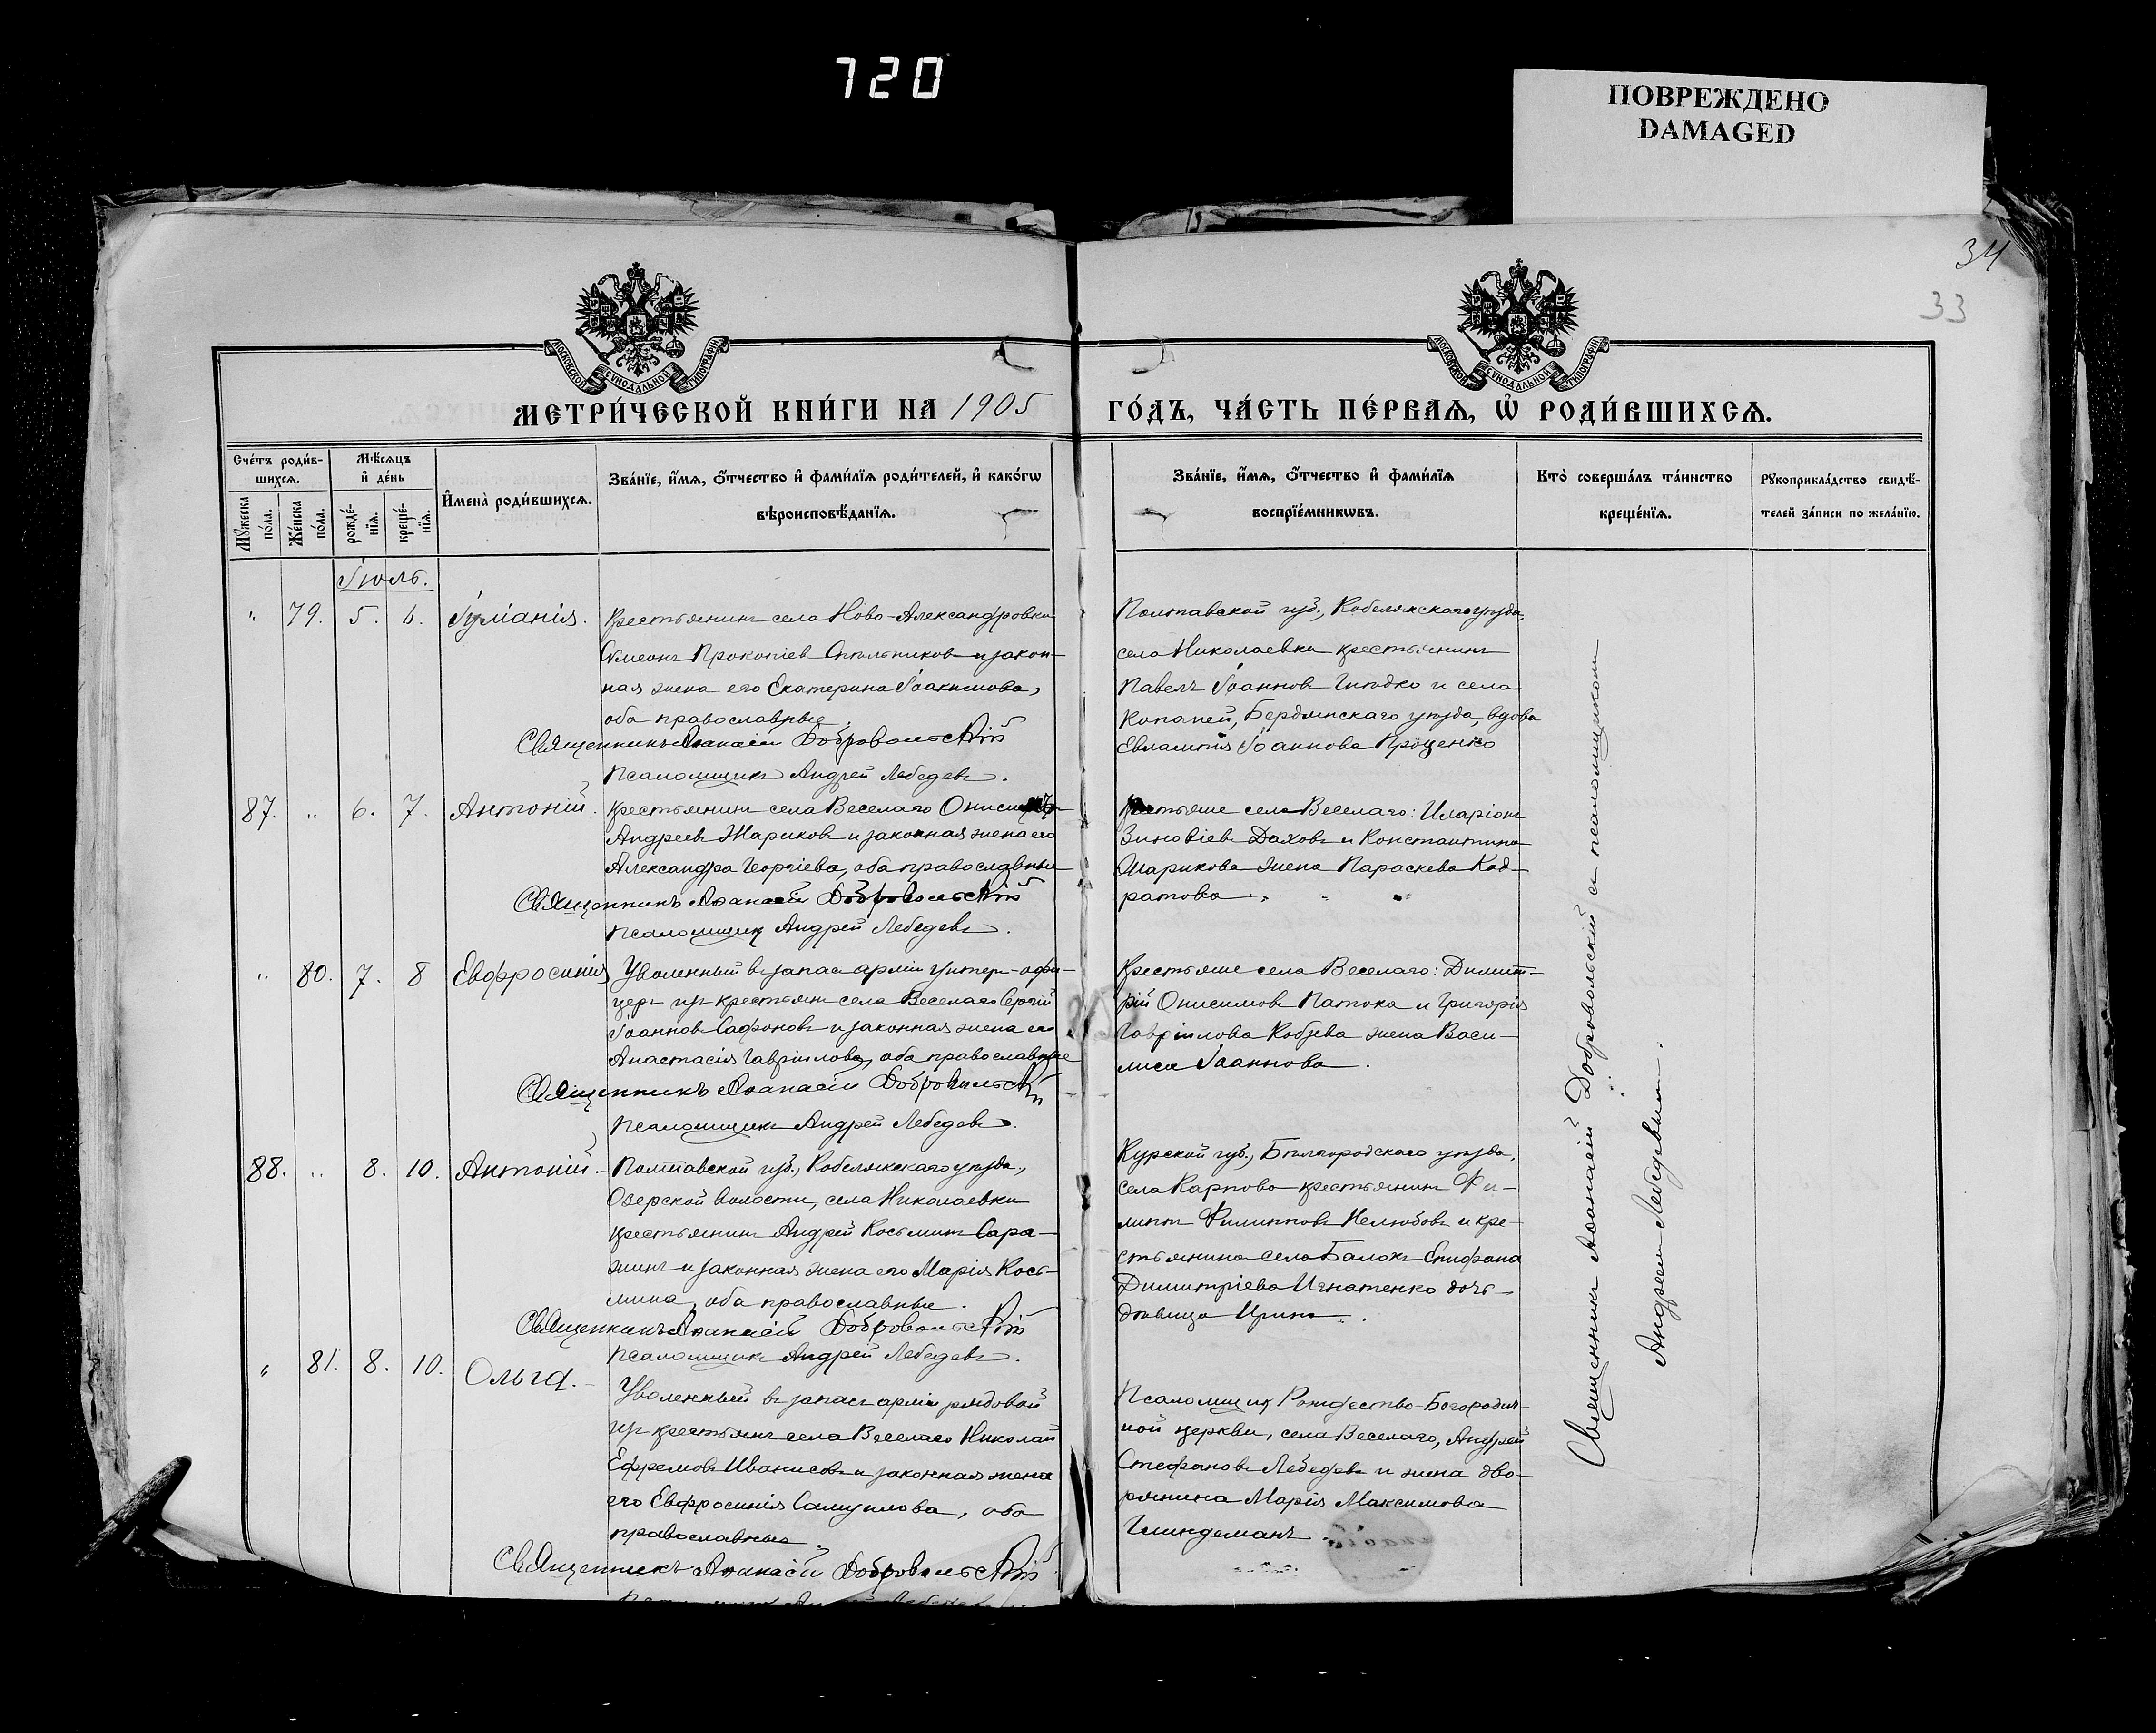 720
ПОВРЕЖДЕНО
DAMAGED
34
33
МОСКОВСКОЙ СѴНОДАЛЬНОЙ ТИПОГРАФІИ
МОСКОВСКОЙ СѴНОДАЛЬНОЙ ТИПОГРАФІИ
МЕТРИ́ЧЕСКОЙ КНИ́ГИ НА 1905 ГО́ДЪ, ЧА́СТЬ ПЕ́РВАЯ, Ѡ РОДИ́ВШИХСЯ.
Сче́тъ роди́в-
шихся.
Мꙋжеска по́ла.
Же́нска по́ла.
Мѣ́сяцъ
и де́нь
рожде́-
нїя.
креще́-
нїя.
Имена̀ роди́вшихся.
Зва́нїе, и́мя, о́тчество и фами́лїя роди́телей, и како́гѡ
вѣроисповѣ́данїя.
Зва́нїе, и́мя, о́тчество и фами́лїя
воспрїе́мникѡвъ.
Кто̀ соверша́лъ та́инство
креще́нїя.
Рꙋкоприкла́дство свидѣ́-
телей за́писи по жела́нїю.
Іюль.
" 79. 5. 6. Іуліанія.
Крестьянинъ села Ново-Александровки
Сѵмеонъ Прокопіевъ и закон-
ная жена его Екатерина Іоакимова,
оба православные.
Священникъ Аѳанасій Добровольскій
Псаломщикъ Андрей Лебедевъ.
Полтавской губ., Кобелякскаго уѣзда,
села Николаевки крестьянинъ
Павелъ Іоанновъ и села
Копаней, Бердянскаго уѣзда, вдова
Евлампія Іоаннова Проценко
87. " 6. 7. Антоній.
Крестьянинъ села Веселаго
Андреевъ Жариковъ и законная жена его
Александра Георгіева, оба православные
Священникъ Аѳанасій Добровольскій
Псаломщикъ Андрей Лебедевъ.
Крестьяне села Веселаго: Иларіонъ
Зиновіевъ Даховъ и Константина
Жарикова жена Параскева Код-
ратова
" 80. 7. 8 Евфросинія
Уволенный въ запасъ арміи унтеръ-офи-
церъ изъ крестьянъ села Веселаго Сергій
Іоанновъ Сафоновъ и законная жена его
Анастасія Гавріилова, оба православные
Священникъ Аѳанасій Добровольскій
Псаломщикъ Андрей Лебедевъ.
Крестьяне села Веселаго: Димит-
рій Онисимовъ Патока и Григорія
Гавріилова Кобзева жена Васи-
лиса Іоаннова.
88. " 8. 10. Антоній.
Полтавской губ., Кобелякскаго уѣзда,
Озерской волости, села Николаевки
крестьянинъ Андрей Косьминъ Сара-
жинъ и законная жена его Марія Кось-
мина, оба православные.
Священникъ Аѳанасій Добровольскій
Псаломщикъ Андрей Лебедевъ.
Курской губ., Бѣлгородскаго уѣзда,
села Карпово крестьянинъ Фи-
липпъ Филипповъ Нелюбовъ и кре-
стьянина села Балокъ Епифана
Димитріева Игнатенко дочь-
дѣвица Ирина.
" 81. 8. 10. Ольга.
Уволенный въ запасъ арміи рядовой
изъ крестьянъ села Веселаго Николай
Ефремовъ Иванисовъ и законная жена
его Евфросинія Самуилова, оба
православные.
Священникъ Аѳанасій Добровольскій
Псаломщикъ Рождество-Богородич-
ной церкви, села Веселаго, Андрей
Стефановъ Лебедевъ и жена дво-
рянина Марія Максимова
Гминдеманъ.
Священникъ Аѳанасій Добровольскій съ псаломщикомъ
Андреемъ Лебедевымъ.